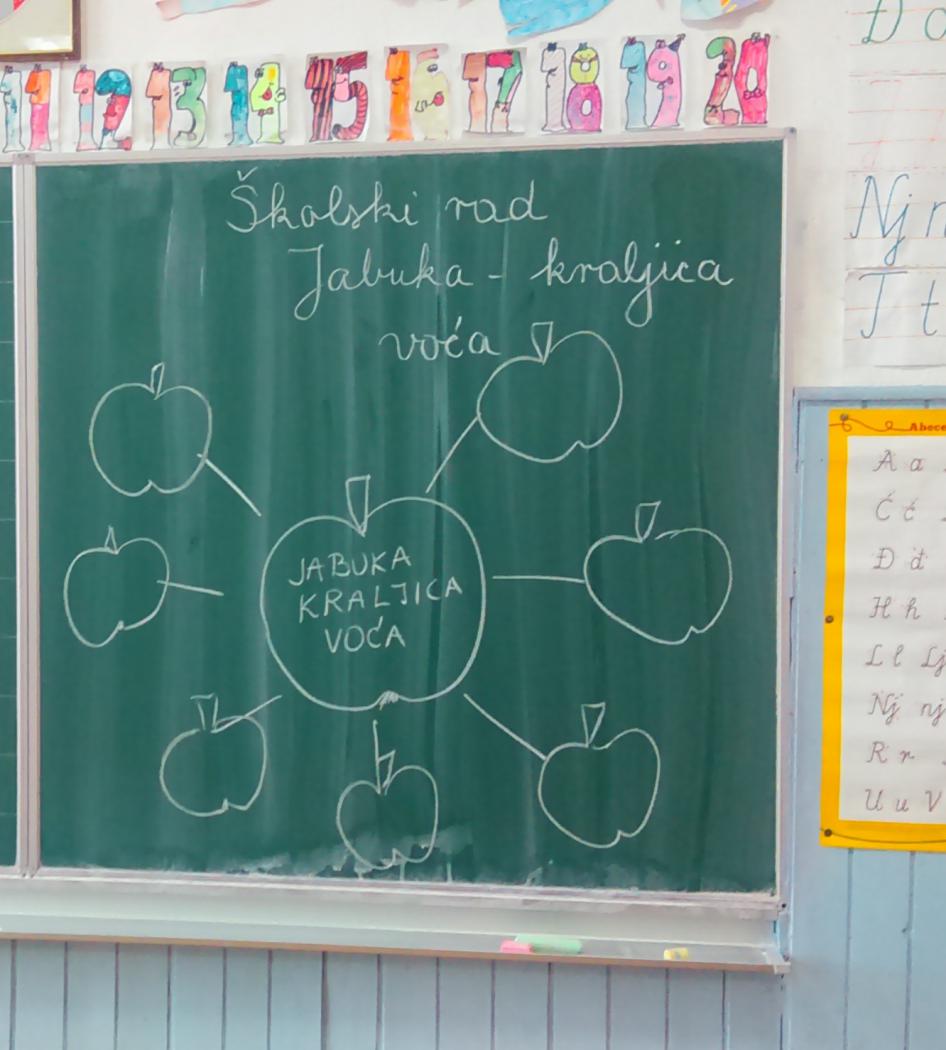 11 12 13 14 15 16 17 18 19 20
Školski rad
Jabuka - kraljica
voća
JABUKA
KRALJICA
VOĆA
Đ
Nj
T t
Abece
A a
Ć ć
Đ đ
H h
L l Lj
Nj nj
R r
U u V